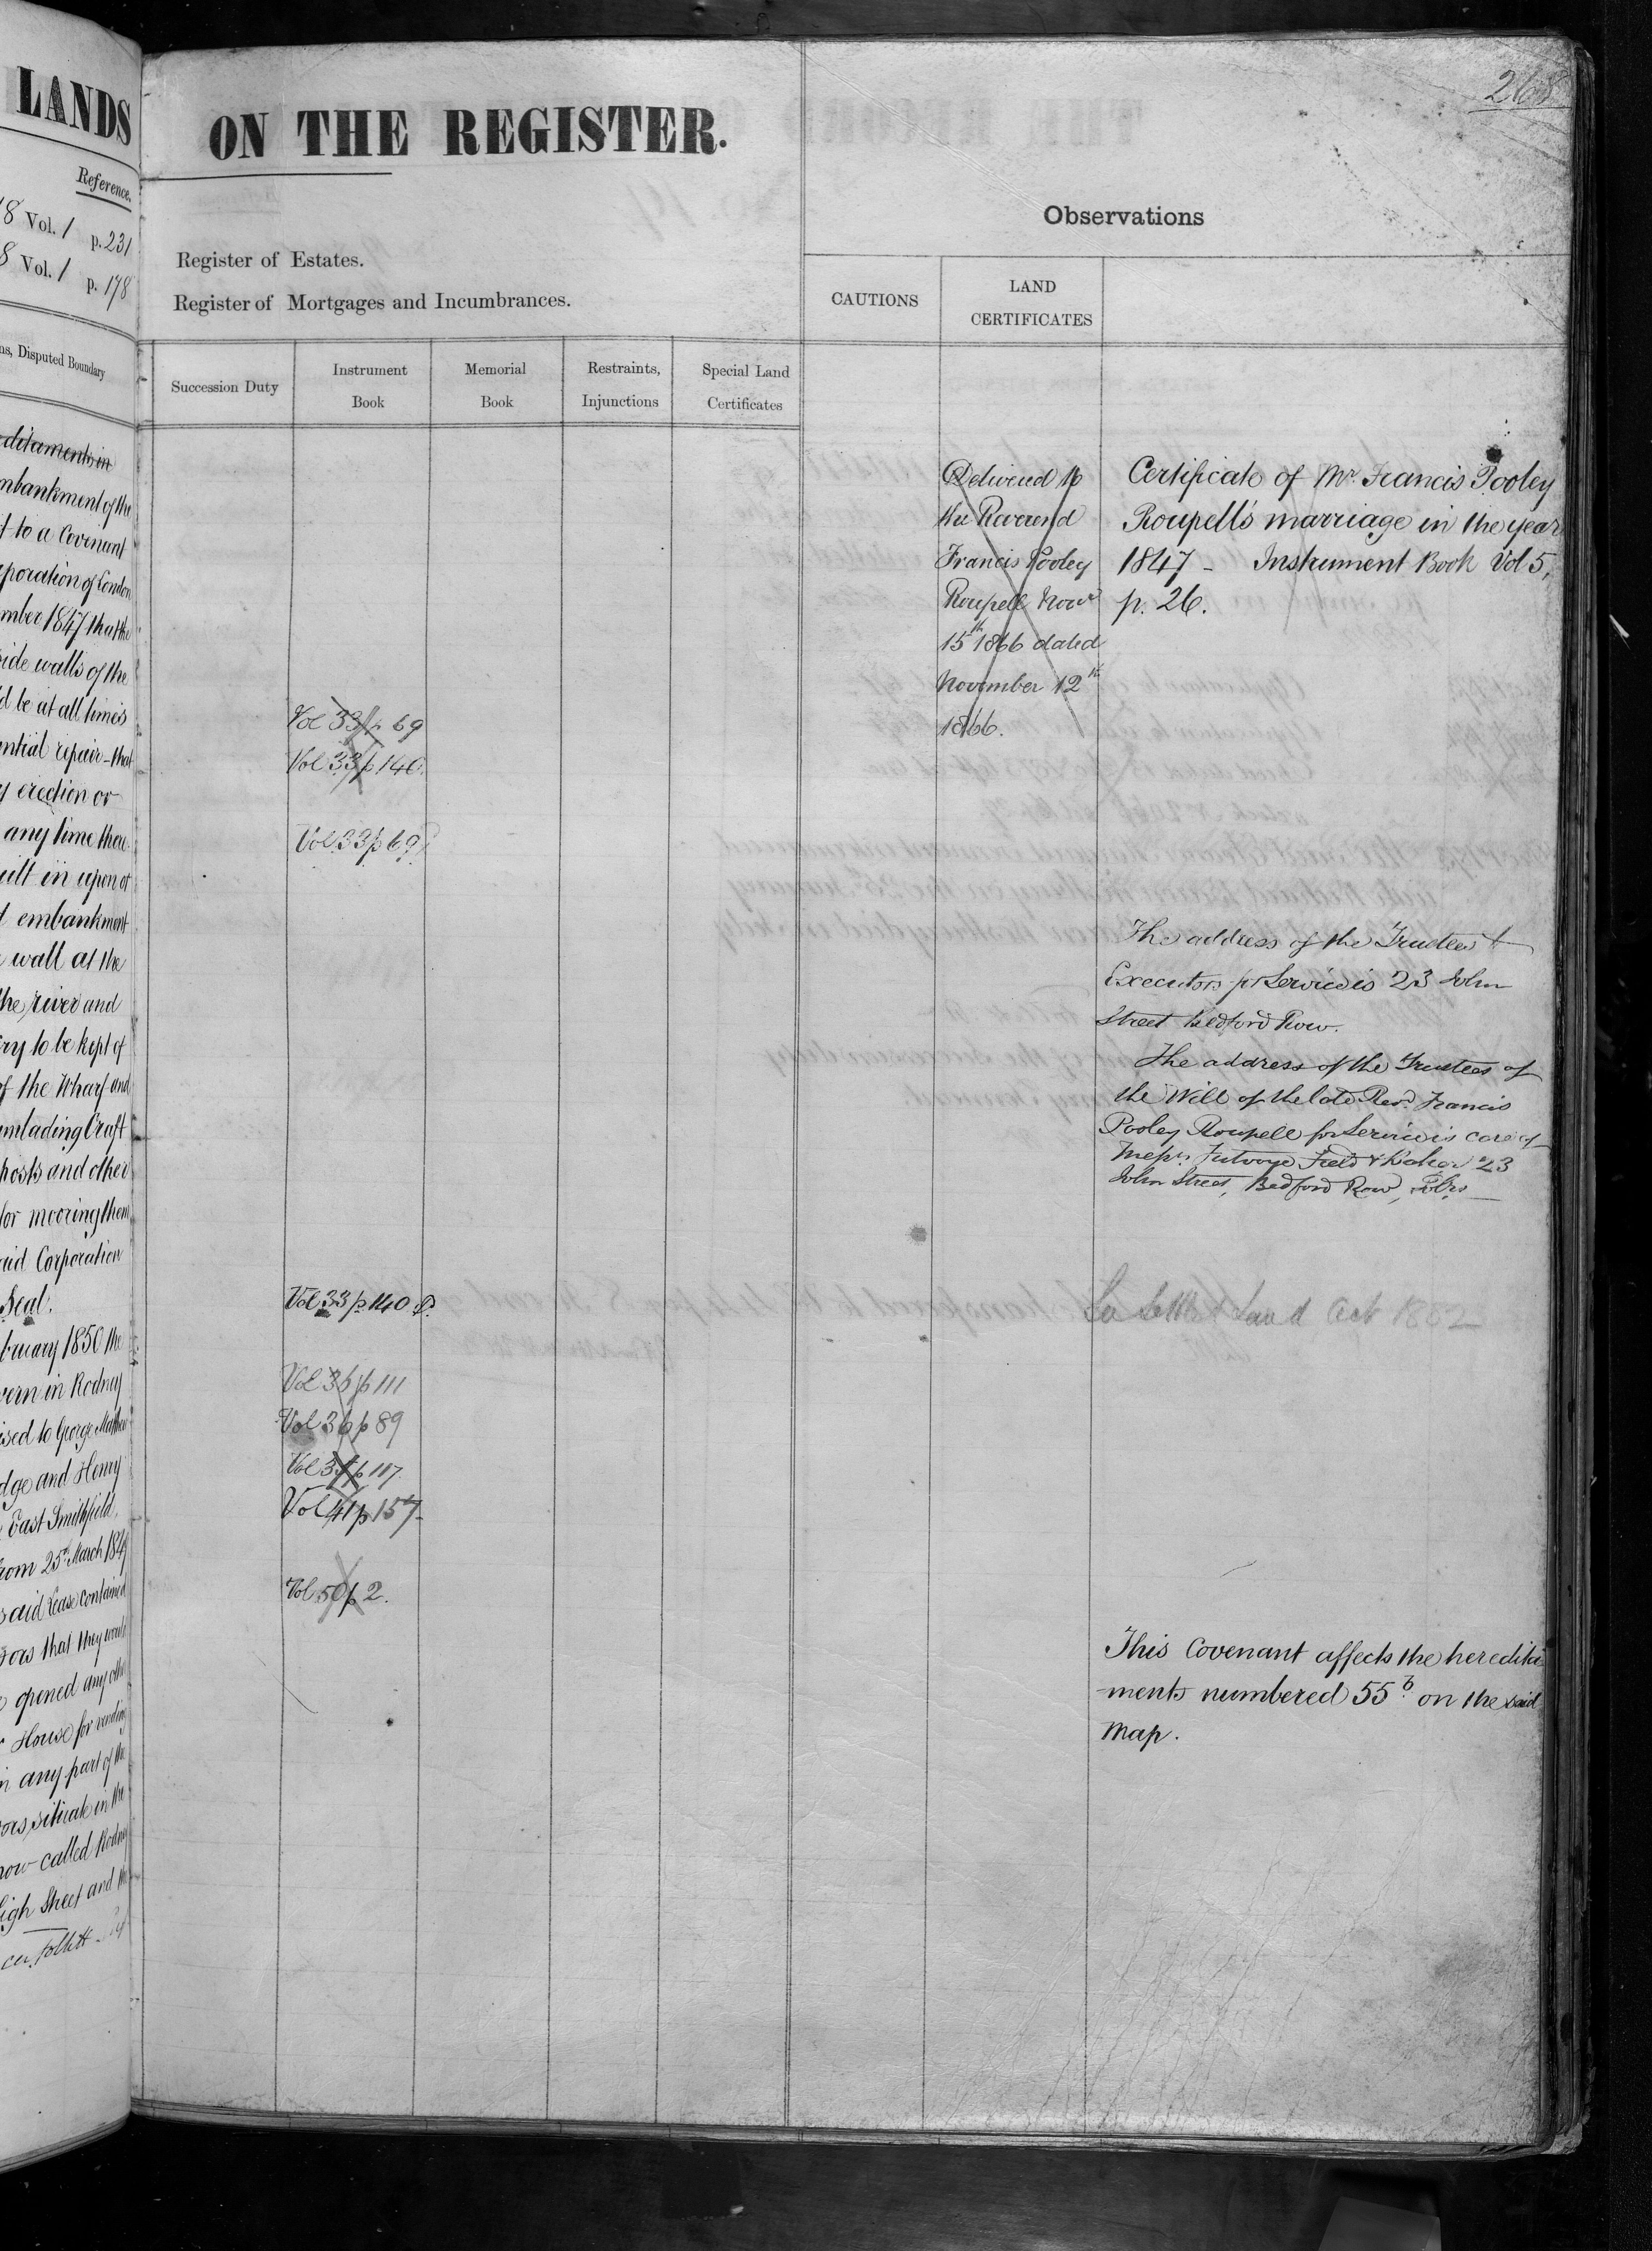 LANDS
Reference.
18 Vol. 1 p. 231
8 Vol. 1 p. 178
ns, Disputed Boundary
ditaments in
mbankment of the
t to a Covenant
rporation of London
mber 1847 that the
side walls of the
d be at all times
ntial repair - that
y erection or
any time there
uilt in upon or
embankment
wall at the
the river and
ry to be kept of
of the Wharf and
unlading Craft
posts and other
for mooring them
aid Corporation
Seal.
bruary 1850 the
vern in Rodney
ised to George Matthew
dge and Henry
East Smithfield,
from 25th March 1849
said Lease contained
tors that they would
opened any other
House for vending
in any part of the
ors situate in the
now called Rodney
High Street and the
268
ON THE REGISTER.
Register of Estates.
Register of Mortgages and Incumbrances.
Observations
Succession Duty
Instrument Book
Memorial Book
Restraints, Injunctions
Special Land Certificates
CAUTIONS
LAND CERTIFICATES
Vol 33 p 69
Vol 33 p 140.
Vol 33 p 69
Vol 33 p 140
Vol 36 p 111
Vol 36 p 89
Vol p 117
Vol 41 p 157
Vol 50 p 2.
Delivered to
the Reverend
Francis Pooley
Roupell Novr
15th 1866 dated
November 12th
1866.
Certificate of Mr. Francis Pooley
Roupell's marriage in the year
1847 - Instrument Book Vol 5,
p. 26.
The address of the Trustees &
Executors for Service is 23 John
Street Bedford Row.
The address of the Trustees of
the Will of the late Revd. Francis
Pooley Roupell for Service is care of
Messrs. Futvoye Field & Baker 23
John Street, Bedford Row, Solrs
Settled Land Act 1882
This Covenant affects the heredita
-ments numbered 55b on the said
Map.